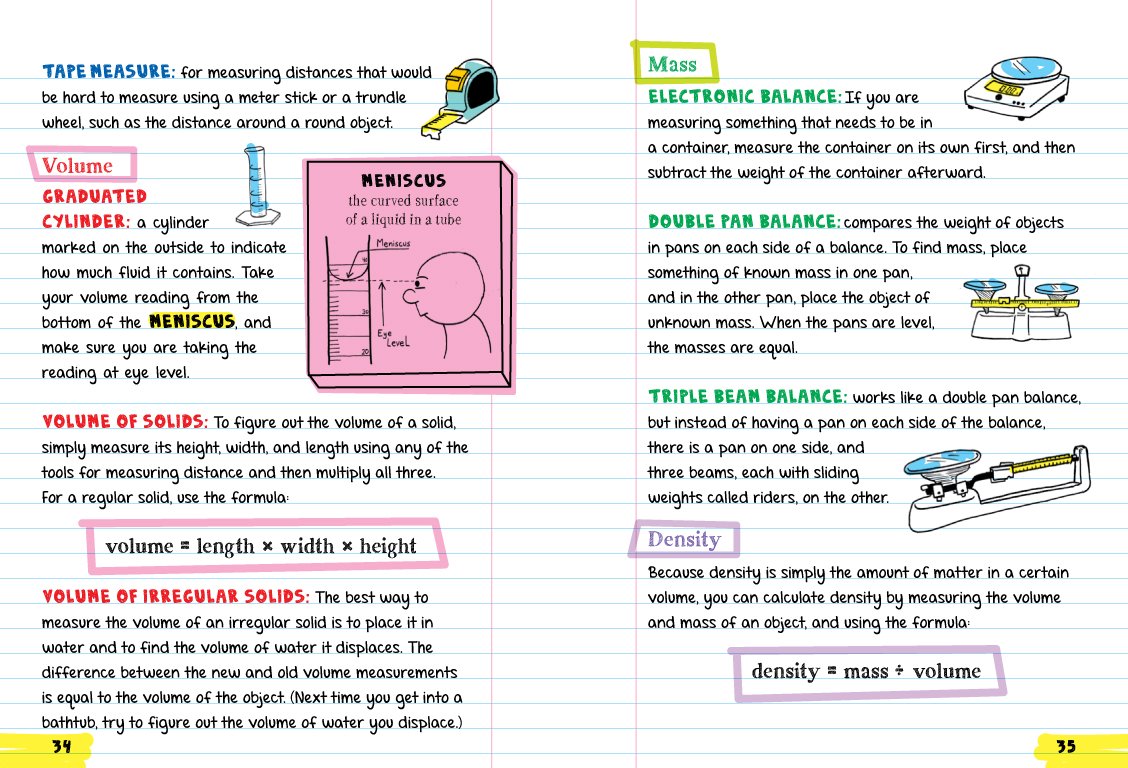 TAPE MEASURE: for measuring distances that would
be hard to measure using a meter stick or a trundle
wheel, such as the distance around a round object.
Volume
GRADUATED
CYLINDER: a cylinder
marked on the outside to indicate
how much fluid it contains. Take
your volume reading from the
bottom of the MENISCUS, and
make sure you are taking the
reading at eye level.
MENISCUS
the curved surface
of a liquid in a tube
Meniscus
40
30
20
Eye
Level
VOLUME OF SOLIDS: To figure out the volume of a solid,
simply measure its height, width, and length using any of the
tools for measuring distance and then multiply all three.
For a regular solid, use the formula:
volume = length × width × height
VOLUME OF IRREGULAR SOLIDS: The best way to
measure the volume of an irregular solid is to place it in
water and to find the volume of water it displaces. The
difference between the new and old volume measurements
is equal to the volume of the object. (Next time you get into a
bathtub, try to figure out the volume of water you displace.)
34
Mass
ELECTRONIC BALANCE: If you are
measuring something that needs to be in
a container, measure the container on its own first, and then
subtract the weight of the container afterward.
DOUBLE PAN BALANCE: compares the weight of objects
in pans on each side of a balance. To find mass, place
something of known mass in one pan,
and in the other pan, place the object of
unknown mass. When the pans are level,
the masses are equal.
TRIPLE BEAN BALANCE: works like a double pan balance,
but instead of having a pan on each side of the balance,
there is a pan on one side, and
three beams, each with sliding
weights called riders, on the other.
Density
Because density is simply the amount of matter in a certain
volume, you can calculate density by measuring the volume
and mass of an object, and using the formula:
density = mass ÷ volume
35